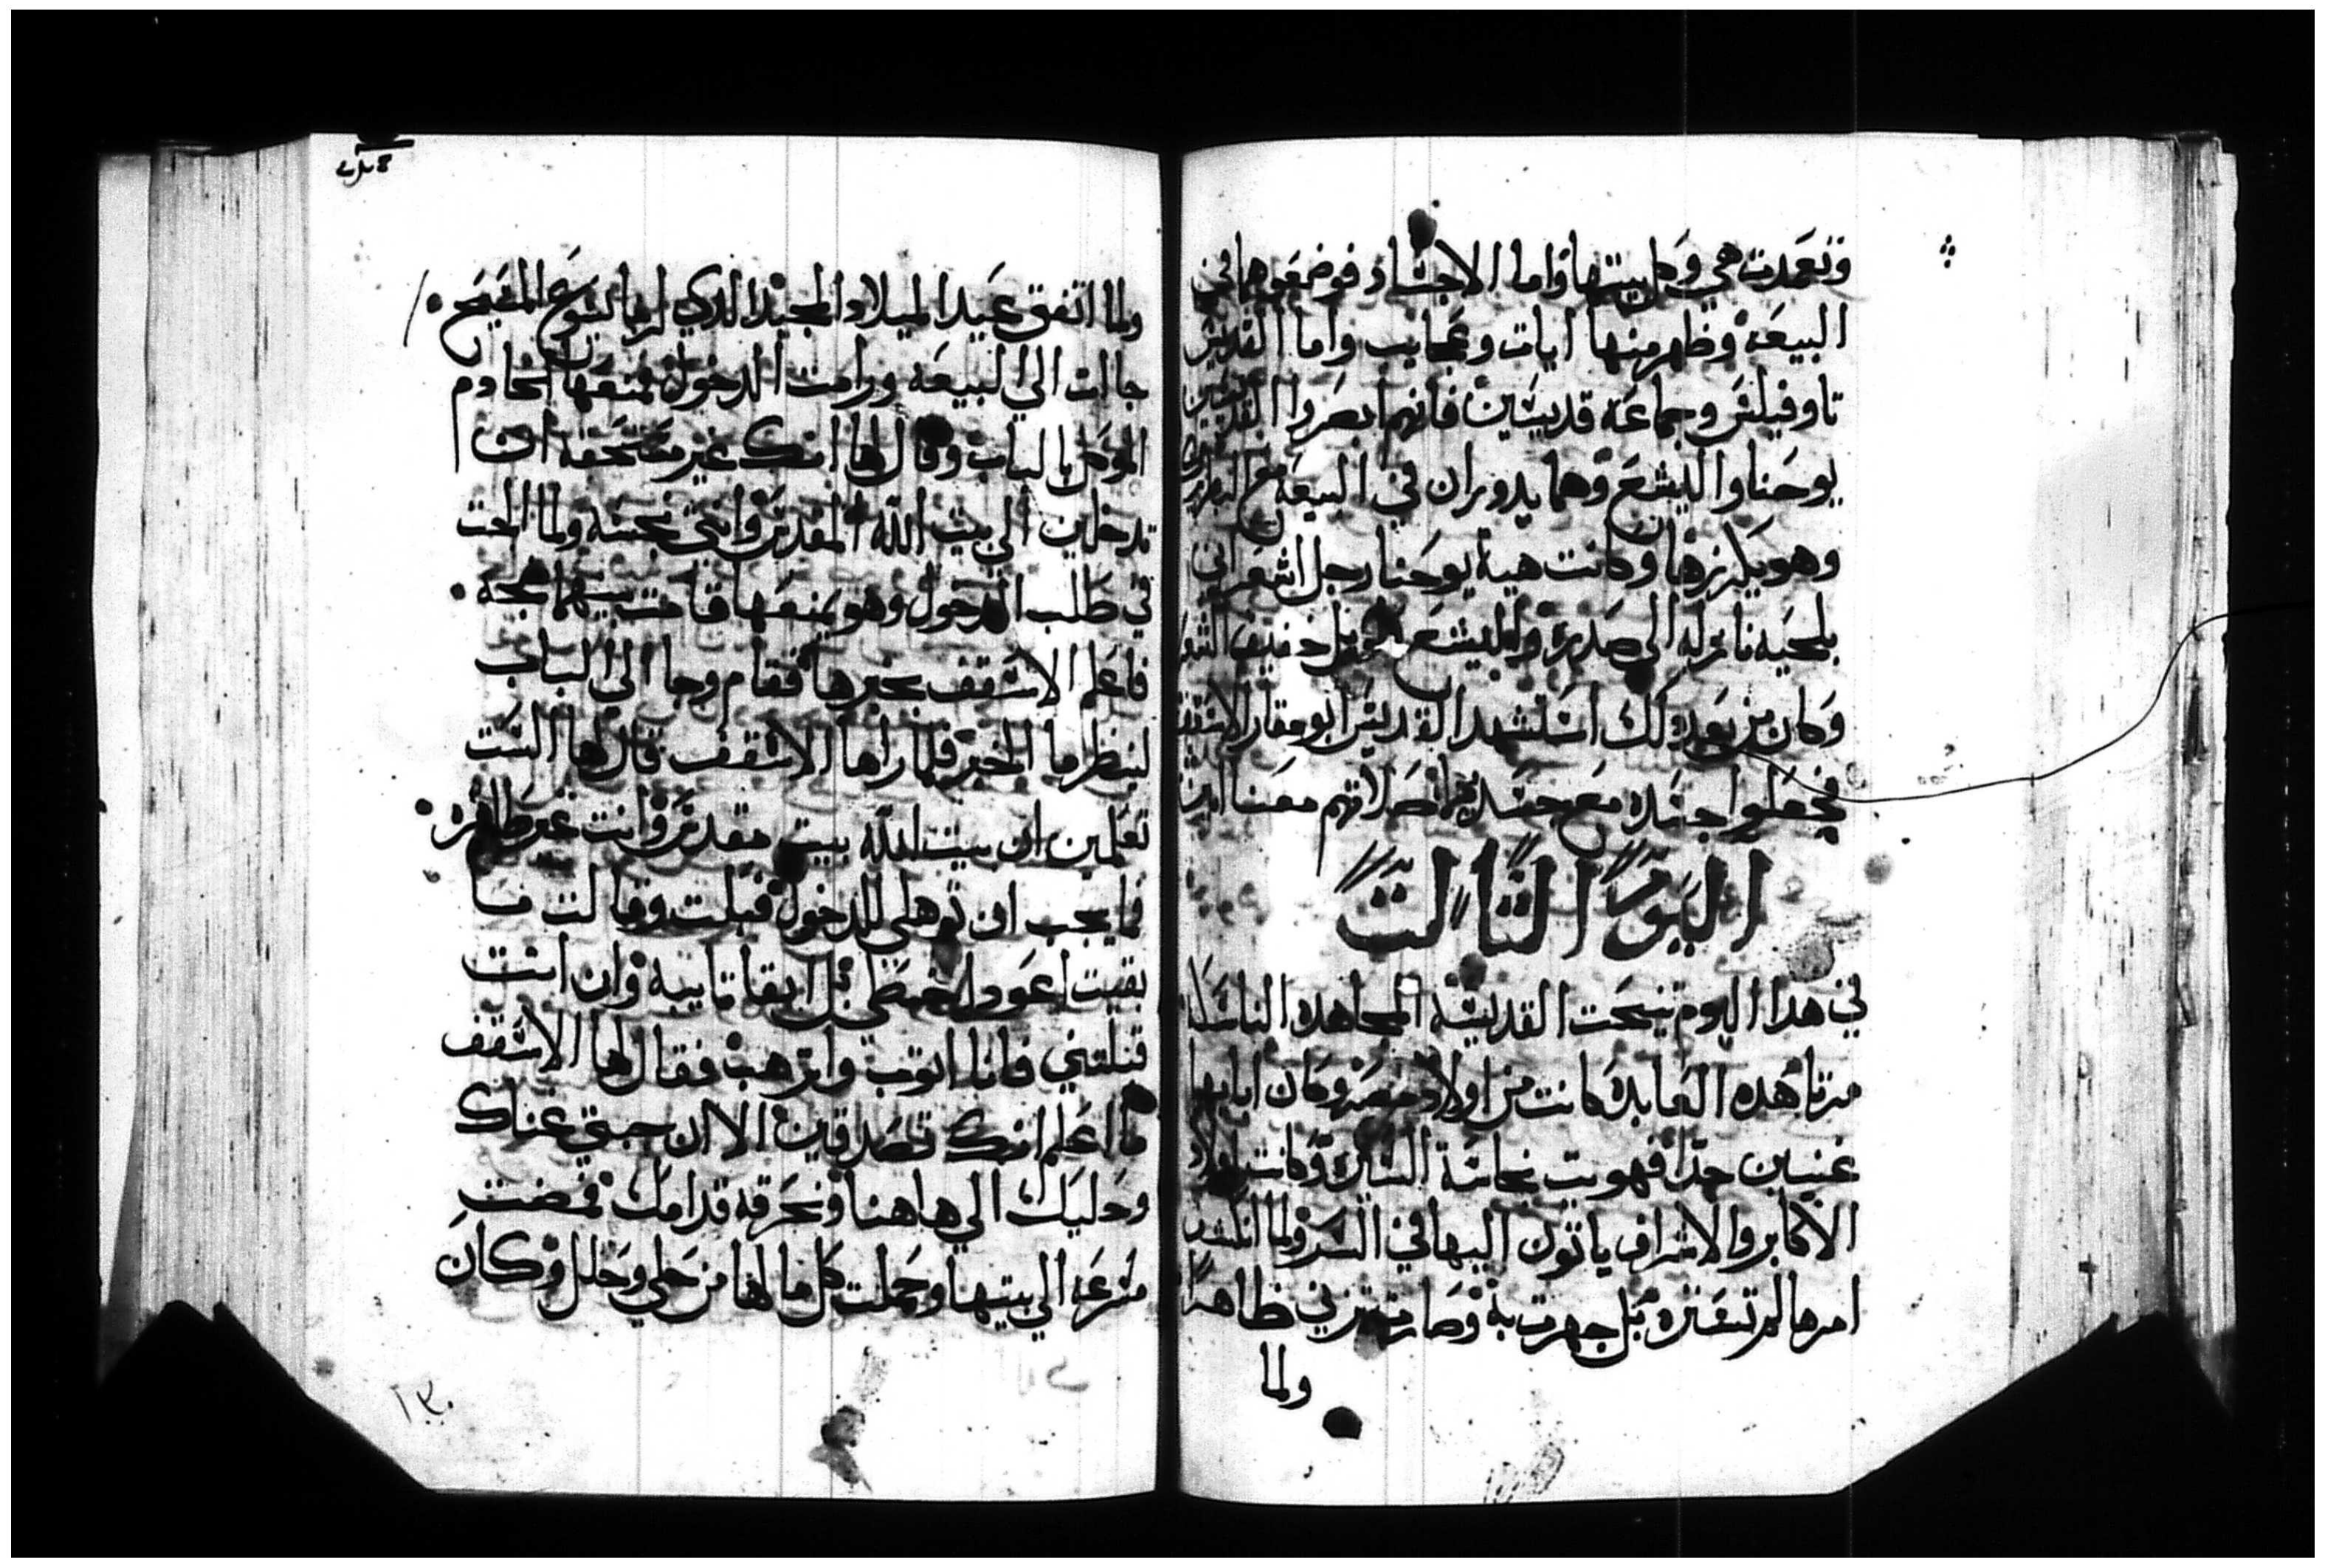 وتعمدت هي وكل بيتها واما الاجساد فوضعوهما في
البيعة وظهر منها ايات وعجايب واما القديس
تاوفيلس وجماعة قديسين فانهم ابصروا القديسين
يوحنا واليشع وهما يدوران في البيعة مع البطريرك
وهو يكرزها وكانت هية يوحنا رجل اشعراني
بلحيه نازله الى صدره واليشع خفيف الشعر
وكان من بعد دلك استشهد القديس ابو مقار الاسقف
فجعلوا جسده مع جسديهما صلاتهم معنا امين
اليوم التالت
في هدا اليوم تنيحت القديسة المجاهده الناسكة
مرتا هده العابده كانت من اولاد مصر وكان اباها
غنيين جدا فهويت نجاسة السيرة وكانت اولاد
الاكابر والاشراف ياتون اليها في السر ولما انتشر
امرها لم تستتره بل جهرت به وصارت تزني ظاهرا
ولما
ولما اتفق عيد الميلاد المجيد الدي لربنا يسوع المسيح
جاات الي البيعه ورامت الدخول فمنعها الخادم
الموكل بالباب وقال لها انك غير مستحقه ان
تدخلين الي بيت الله المقدس وانتي نجسه ولما الحت
في طلب الدخول وهو يمنعها قامت بينهما ضجه
فاعلم الاسقف بخبرها فقام وجا الي الباب
لينظر ما الخبر فلما راها الاسقف قال لها الست
تعلمين ان بيت الله بيت مقدس وانت غير طاهره
فما يجب ان توهلي للدخول فبكت وقالت ما
بقيت اعود اخطي بل ابقا تايبة وان انت
قبلتني فانا اتوب واترهب فقال لها الاسقف
ما اعلم انك تصدقين الا ان جبتي غناك
وحليك الي هاهنا ونحرقه قدامك فمضت
مسرعه الي بيتها وحملت كل ما لها من حلي وحلل وكان
١٣٠